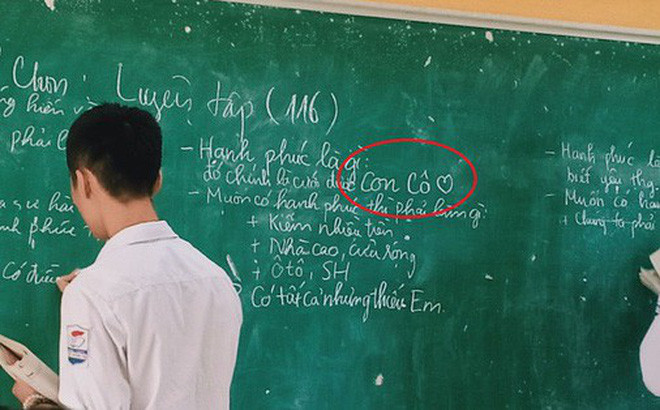 Chọn: Luyện tập (116)
hiến
phải
- Hạnh phúc là gì:
đó chính là cưới được con Cô ♡
- Muốn có hạnh phúc thì phải làm gì:
+ Kiếm nhiều tiền
+ Nhà cao, cửa rộng
+ Ô tô, SH
Có tất cả nhưng thiếu Em.
Có
- Hạnh phúc
biết yêu
- Muốn có
+ Chúng ta phải